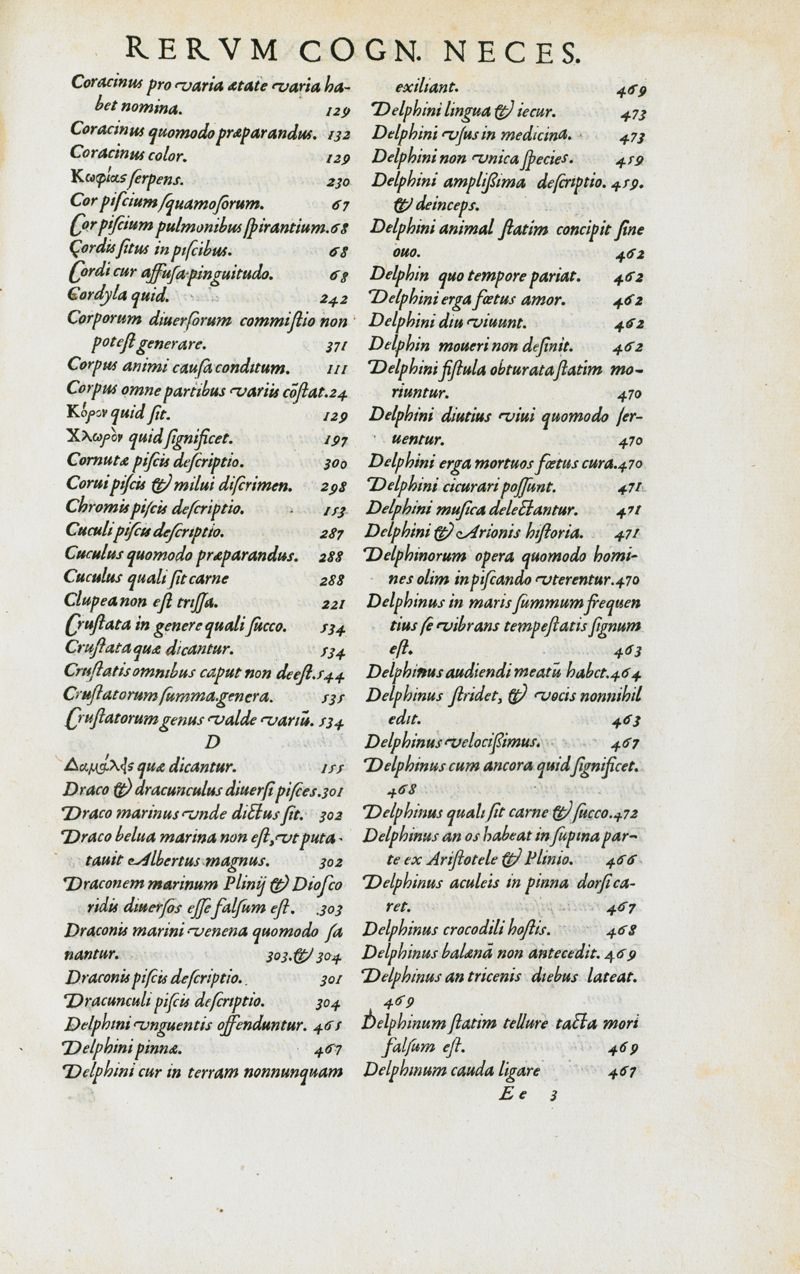 RERVM COGN. NECES.
Coracinus pro varia ætate varia ha-
bet nomina. 129
Coracinus quomodo præparandus. 132
Coracinus color. 129
Κωφίας ſerpens. 230
Cor piſcium ſquamoſorum. 67
Cor piſcium pulmonibus ſpirantium. 68
Cordis ſitus in piſcibus. 68
Cordi cur affuſa pinguitudo. 68
Cordyla quid. 242
Corporum diuerſorum commiſtio non
poteſt generare. 371
Corpus animi cauſa conditum. 111
Corpus omne partibus variis cõſtat. 24
Κόρον quid ſit. 129
Χλωρὸν quid ſignificet. 197
Cornutæ piſcis deſcriptio. 300
Corui piſcis & milui diſcrimen. 298
Chromis piſcis deſcriptio. 153
Cuculi piſcis deſcriptio. 287
Cuculus quomodo præparandus. 288
Cuculus quali ſit carne 288
Clupea non eſt triſſa. 221
Cruſtata in genere quali ſucco. 534
Cruſtata quæ dicantur. 534
Cruſtatis omnibus caput non deeſt. 544
Cruſtatorum ſumma genera. 535
Cruſtatorum genus valde variũ. 534
D
quæ dicantur. 155
Draco & dracunculus diuerſi piſces. 301
Draco marinus vnde dictus ſit. 302
Draco belua marina non eſt, vt puta-
tauit Albertus magnus. 302
Draconem marinum Plinij & Dioſco
ridis diuerſos eſſe falſum eſt. 303
Draconis marini venena quomodo ſa
nantur. 303. & 304
Draconis piſcis deſcriptio. 301
Dracunculi piſcis deſcriptio. 304
Delphini vnguentis offenduntur. 465
Delphini pinnæ. 467
Delphini cur in terram nonnunquam
exiliant. 469
Delphini lingua & iecur. 473
Delphini vſus in medicina. 473
Delphini non vnica ſpecies. 459
Delphini ampliſsima deſcriptio. 459.
& deinceps.
Delphini animal ſtatim concipit ſine
ouo. 462
Delphin quo tempore pariat. 462
Delphini erga fœtus amor. 462
Delphini diu viuunt. 462
Delphin moueri non deſinit. 462
Delphini fiſtula obturata ſtatim mo-
riuntur. 470
Delphini diutius viui quomodo ſer-
uentur. 470
Delphini erga mortuos fœtus cura. 470
Delphini cicurari poſſunt. 471
Delphini muſica delectantur. 471
Delphini & Arionis hiſtoria. 471
Delphinorum opera quomodo homi-
nes olim in piſcando vterentur. 470
Delphinus in maris ſummum frequen
tius ſe vibrans tempeſtatis ſignum
eſt. 463
Delphinus audiendi meatũ habet. 464
Delphinus ſtridet, & vocis nonnihil
edit. 463
Delphinus velociſsimus. 467
Delphinus cum ancora quid ſignificet.
468
Delphinus quali ſit carne & ſucco. 472
Delphinus an os habeat in ſupina par-
te ex Ariſtotele & Plinio. 466
Delphinus aculeis in pinna dorſi ca-
ret. 467
Delphinus crocodili hoſtis. 468
Delphinus balænã non antecedit. 469
Delphinus an tricenis diebus lateat.
469
Delphinum ſtatim tellure tacta mori
falſum eſt. 469
Delphinum cauda ligare 467
Ee 3